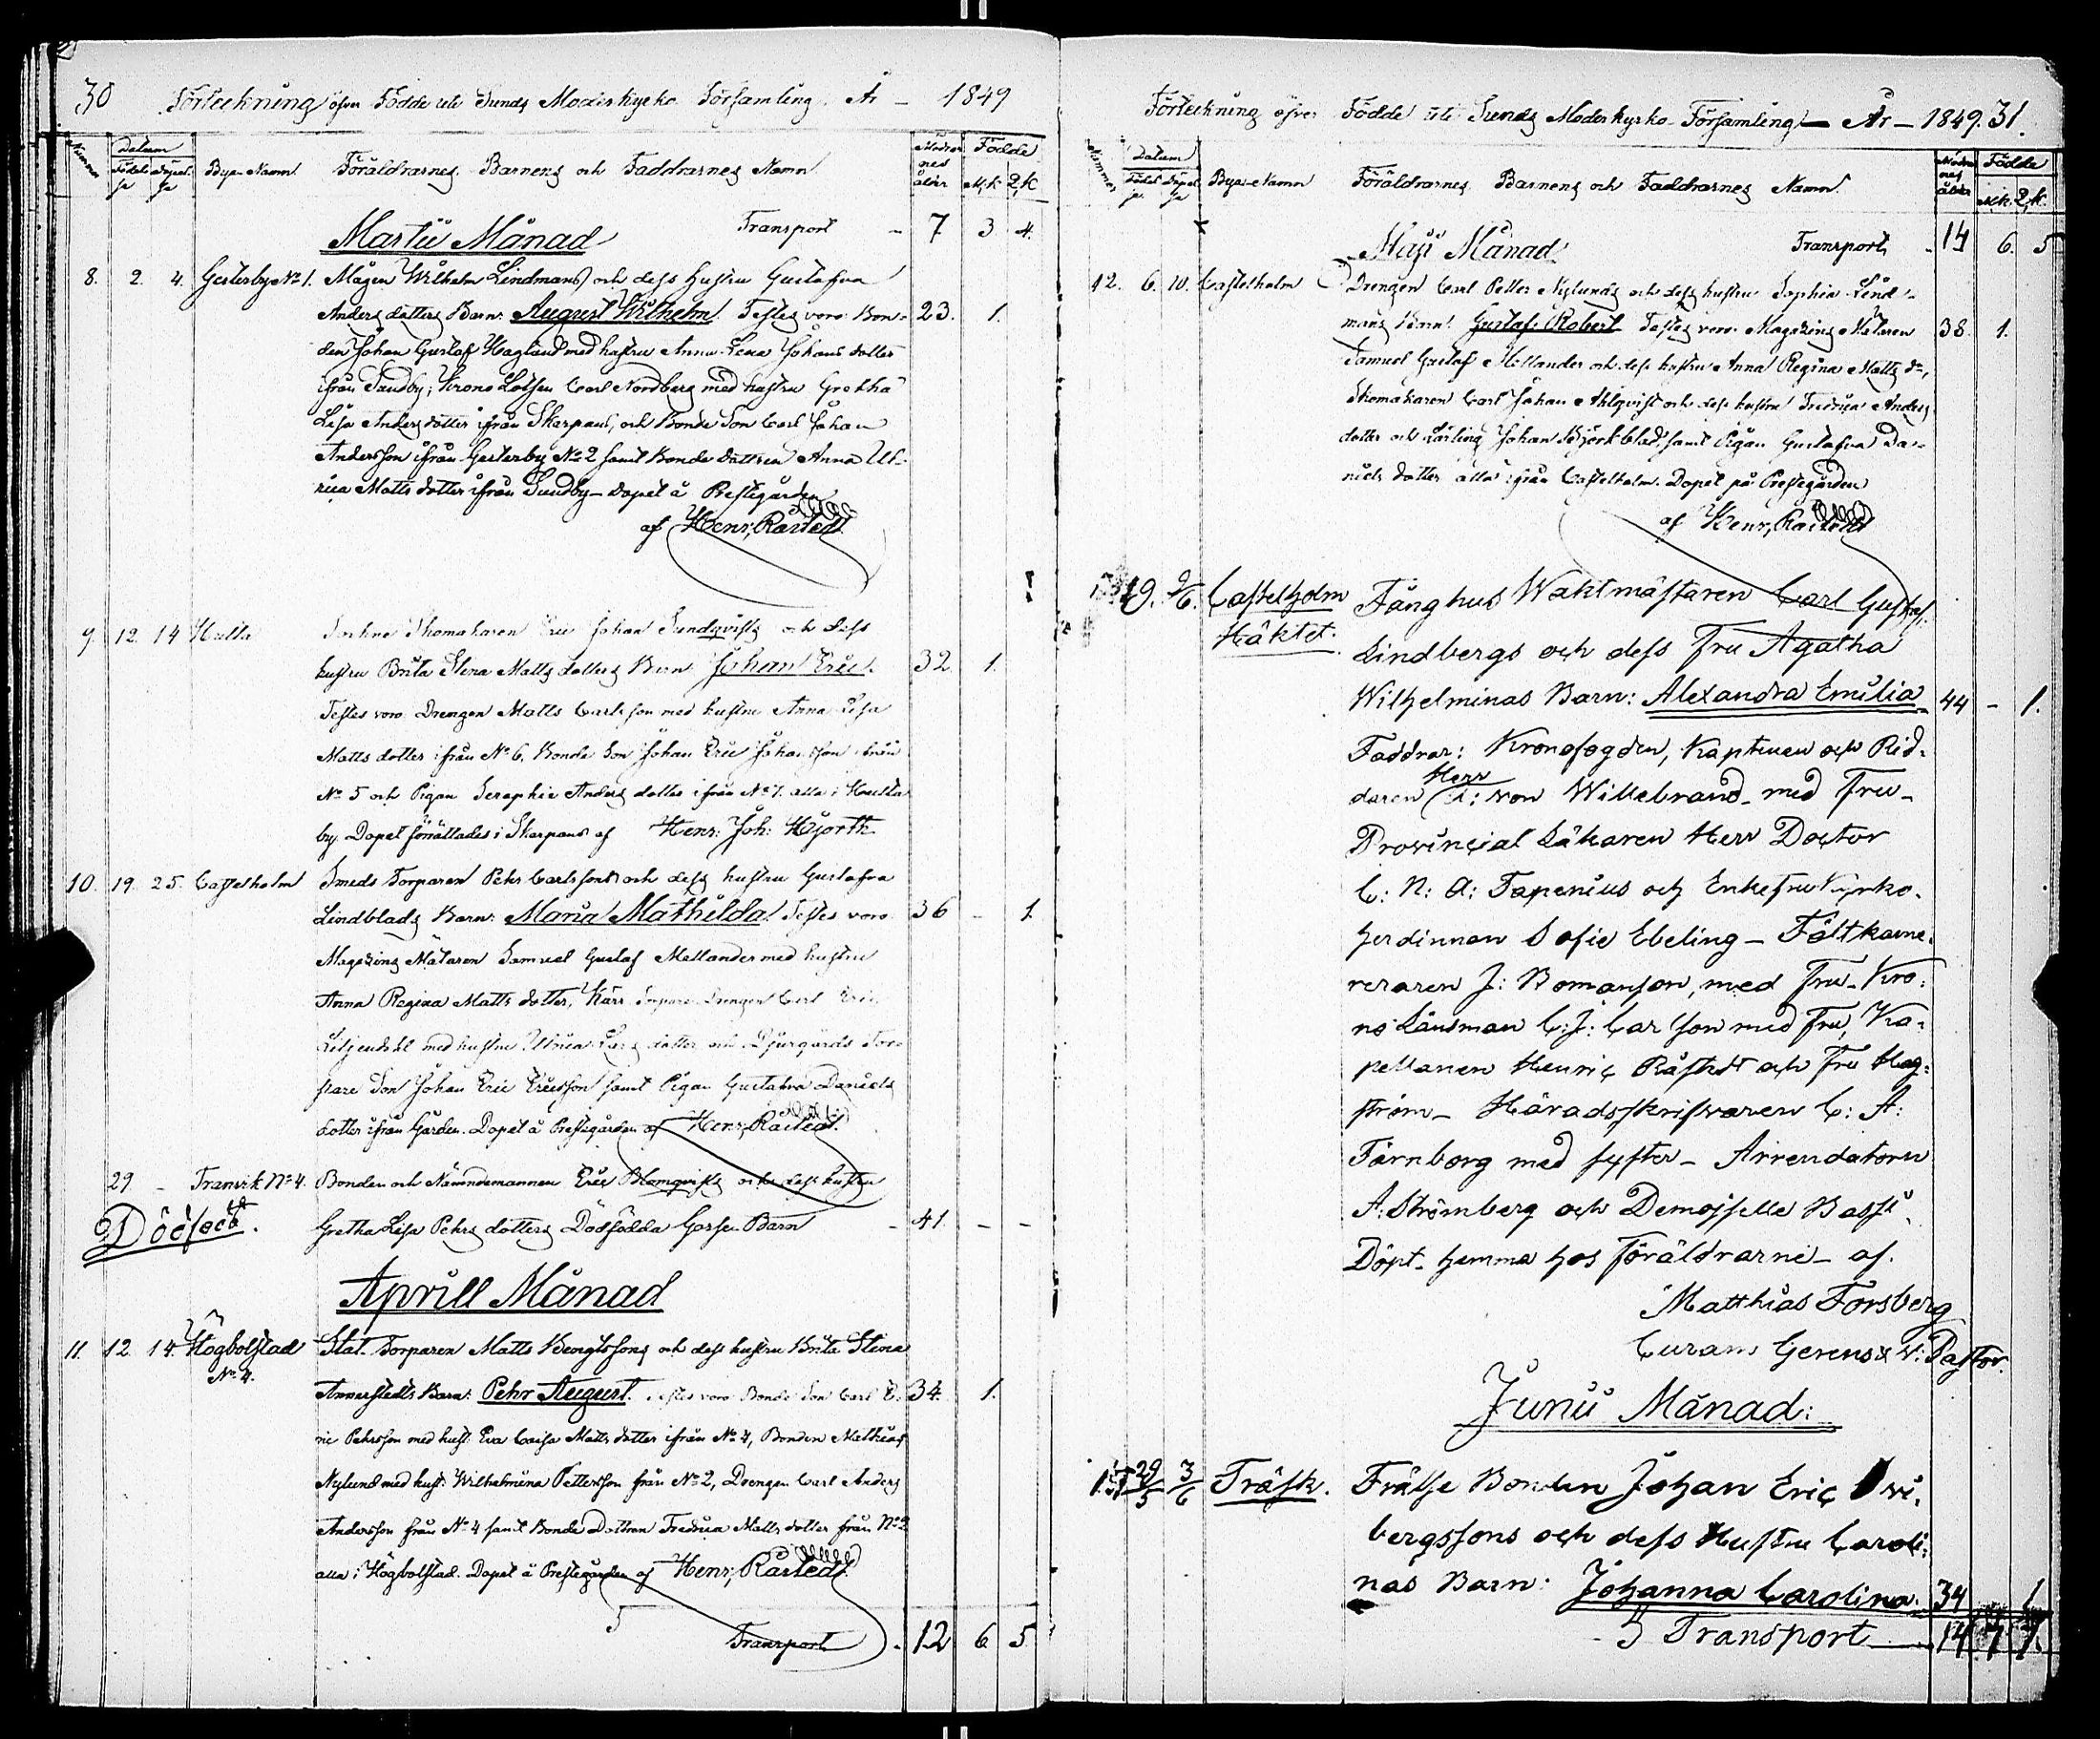 30 Förteckning öfver Födde uti Sunds Moderkyrko Församling. År – 1849
Nummer Datum Födelse Döpelse Byar Namn Föräldrarnes, Barnens och Faddrarnes Namn Modrarnes ålder Födde M.k. Q.k.
Martii Månad Transport – 7 3 4.
8. 2. 4. Gesterby No 1. Mågen Wilhelm Lindmans och dess Hustru Gustafva
Anders dotters Barn: August Wilhelm. Testes voro: Bon- 23. 1.
den Johan Gustaf Haglund med hustru Anna Lena Johans dotter
ifrån Sundby; Krono Lotsen Carl Nordberg med hustru Gretha
Lisa Anders dotter ifrån Skarpans, och Bonde Son Carl Johan
Andersson ifrån Gesterby No 2 samt Bonde dottren Anna Ul-
rica Matts dotter ifrån Sundby – Döpet å Prestegården
af Henr. Råstedt
9. 12. 14 Hulta Sockne Skomakaren Eric Johan Sundqvists och dess
hustru Brita Stena Matts dotters Barn Johan Eric. 32. 1.
Testes voro Drengen Matts Carlsson med hustru Anna Lisa
Matts dotter ifrån No 6, Bonde Son Johan Eric Johansson ifrån
No 5 och Pigan Seraphie Anders dotter ifrån No 7. alla i Hulta
by. Döpet förrättades i Skarpans af Henr: Joh: Hjorth
10. 19. 25. Castelholm Smeds Torparen Pehr Carlssons och dess hustru Gustafva
Lindblads Barn: Maria Mathilda. Testes voro 36 – 1.
Magazins Mätaren Samuel Gustaf Mellander med hustru
Anna Regina Matts dotter, Kärr Torpare Drengen Carl Eric
Liljendahl med hustru Ulrica Lars dotter och Djurgårds Tor-
pare Son Johan Eric Ericsson samt Pigan Gustafva Daniels
dotter ifrån Gården. Döpet å Prestegården af Henr. Råstedt.
29 – Tranvik No 4. Bonden och Nämndemannen Eric Blomqvists och dess hustru
Dödfödt. Gretha Lisa Pehrs dotters Dödfödda Gosse Barn – 41. – –
Aprill Månad
11. 12. 14. Högbolstad Stat. Torparen Matts Bengtssons och dess hustru Brita Stina
No 4.
Annerstedts Barn: Pehr August. Testes voro Bonde Son Carl E- 34. 1.
ric Pehrsson med hust: Eva Caisa Matts dotter ifrån No 4, Bonden Mathias
Nylund med hust: Wilhelmina Pettersson från No 2, Drengen Carl Anders
Andersson från No 4 samt Bonde Dottren Fredrica Matts dotter från No 2
alla i Högbolstad. Döpet å Prestegården af Henr. Råstedt.
5
Transport – 12 6 5
Förteckning öfver Födde uti Sunds Moderkyrko Församling – År – 1849. 31.
Nummer Datum Födelse Döpelse Byar Namn Föräldrarnes, Barnens och Faddrarnes Namn Modrarnes ålder Födde M.k. Q.k.
Maji Månad Transport – 14 6. 5
12. 6. 10. Castelholm Drengen Carl Petter Nylunds och dess hustru Sophia Lind-
mans Barn: Gustaf Robert Testes voro: Magazins Mätaren 38. 1.
Samuel Gustaf Mellander och dess hustru Anna Regina Matts dr,
Skomakaren Carl Johan Ahlqvist och dess hustru Fredrica Anders
dotter och Lärling Johan Björkblad, samt Pigan Gustafva Da-
niels dotter alla ifrån Castelholm. Döpet på Prestegården
af Henr. Råstedt
19. 9/6. Castelholm Fånghus Waktmästaren Carl Gustaf
Häktet. Lindbergs och dess Fru Agatha
Wilhelminas Barn: Alexandra Emilia 44 – 1.
Faddrar: Kronofogden, Kaptenen och Rid-
daren Herr A: von Willebrand – med Fru –
Provincial Läkaren Herr Doctor
C: N: A: Tapenius och Enkefru Kyrko-
herdinnan Sofie Ebeling – Fältkame-
reraren J: Bomanson, med Fru – Kro-
no Länsman C: J: Carlson med Fru, Ka-
pellanen Henric Råstedt och Fru Hag-
ström – Häradsskrifvaren C: A:
Färnborg med syster – Arrendatorn
A: Strömberg och Demoiselle Bassi,
Döpt hemma hos föräldrarne – af.
Matthias Forsberg
Curam Gerens & V: Pastor.
Junii Månad:
29/5 3/6 Träsk. Frälse Bonden Johan Eric
bergssons och dess Hustru Caroli-
nas Barn: Johanna Carolina. 34 1
5 Transport – 14 7 7.